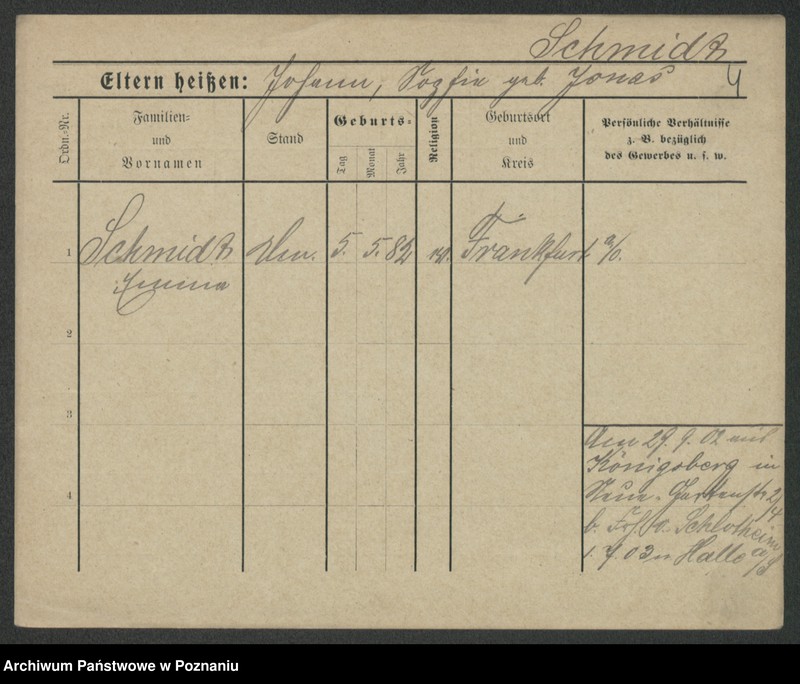 Schmidt
Eltern heißen: Johann, Sozfia geb. Jonas
Ordn.-Nr.
Familien-
und
Vornamen
Stand
Geburts-
Tag
Monat
Jahr
Religion
Geburtsort
und
Kreis
Persönliche Verhältnisse
z. B. bezüglich
des Gewerbes u. s. w.
1 Schmidt 5. 5. 82 Frankfurt a/O.
Emma
2
3
4
Am 29. 9. 02 aus
Königsberg in
Neue-Gartenstr
b. Frh. v. Schlotheim
1. 7. 03 n Halle a/S
Archiwum Państwowe w Poznaniu